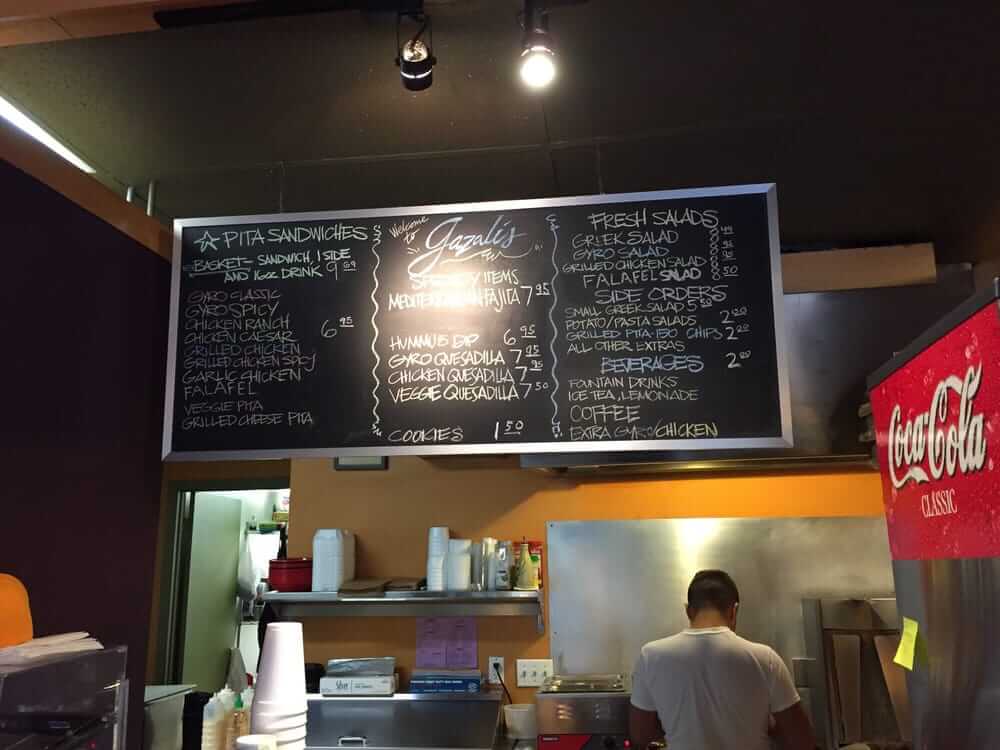 PITA SANDWICHES
BASKET- SANDWICH, 1 SIDE
AND 16oz DRINK 9 69
GYRO CLASSIC
GYRO SPICY
CHICKEN RANCH
CHICKEN CAESAR
6 95
GRILLED CHICKEN
GRILLED CHICKEN SPICY
GARLIC CHICKEN
FALAFEL
VEGGIE PITA
GRILLED CHEESE PITA
Welcome
to
Gazali's
SPECIALTY ITEMS
MEDITERRANEAN FAJITA 7 95
HUMMUS DIP 6 95
GYRO QUESADILLA 7 95
CHICKEN QUESADILLA 7 95
VEGGIE QUESADILLA 7 50
COOKIES 1 50
FRESH SALADS
GREEK SALAD
GYRO SALAD
GRILLED CHICKEN SALAD
FALAFEL SALAD 8 50
SIDE ORDERS
SMALL GREEK SALAD 5 50
POTATO/PASTA SALADS 2 20
GRILLED PITA 1.50 CHIPS 2 20
ALL OTHER EXTRAS
BEVERAGES 2 20
FOUNTAIN DRINKS
ICE TEA, LEMONADE
COFFEE
EXTRA GYRO/CHICKEN
Coca-Cola
CLASSIC